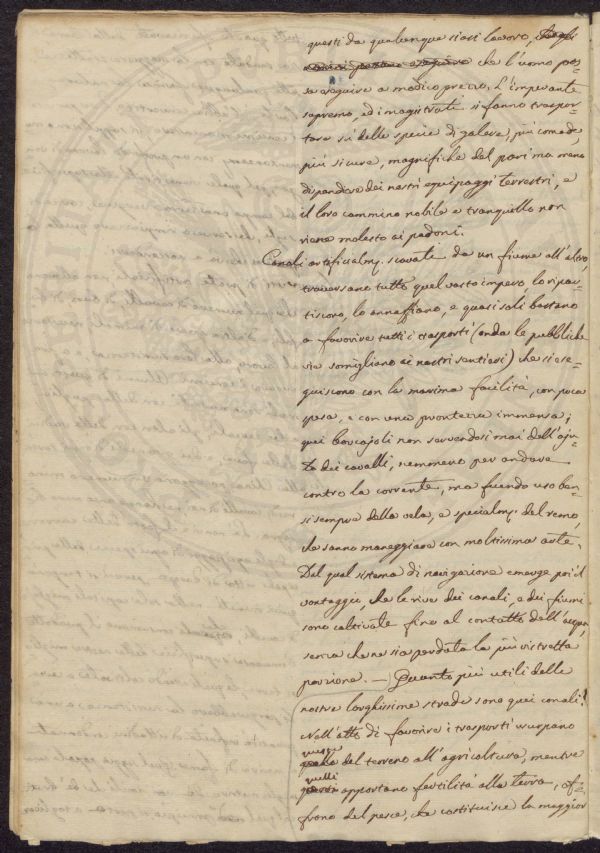 questi da qualunque siasi lavoro,
che l'uomo pos-
sa eseguire a modico prezzo. L'imperante
supremo, ed i magistrati si fanno traspor-
tare su delle specie di galere, più comode,
più sicure, magnifiche del pari ma meno
dispendiose dei nostri equipaggi terrestri, e
il loro cammino nobile e tranquillo non
riesce molesto ai pedoni.
Canali artificialm.e scavati da un fiume all'altro,
traversano tutto quel vasto impero, lo ripar-
tiscono, lo annaffiano, e quasi soli bastano
a favorire tutti i trasporti (onde le pubbliche
vie somigliano ai nostri sentieri) che si ese-
guiscono con la massima facilità, con poca
spesa, e con una prontezza immensa;
quei barcajoli non servendosi mai dell'aju-
to dei cavalli, nemmeno per andare
contro la corrente, ma facendo uso ben-
si sempre della vela, e specialm.e del remo,
che sanno maneggiare con moltissima arte.
Dal qual sistema di navigazione emerge poi il
vantaggio, che le rive dei canali, e dei fiumi
sono coltivate fino al contatto dell'acqua,
senza che ne sia perduta la più ristretta
porzione. — Quanto più utili delle
nostre larghissime strade sono quei canali!
Nell'atto di favorire i trasporti usurpano
queste
del terreno all'agricoltura, mentre
quelli
apportano fertilità alla terra, of-
frono del pesce, che costituisce la maggior